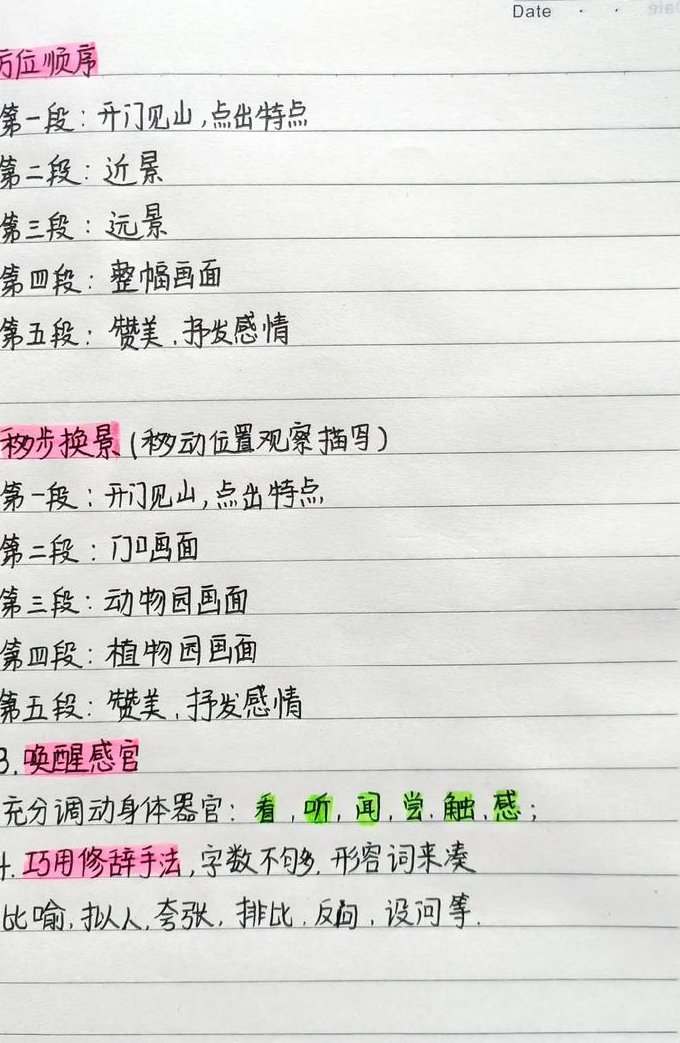 Date
方位顺序
第一段：开门见山，点出特点
第二段：近景
第三段：远景
第四段：整幅画面
第五段：赞美、抒发感情
移步换景（移动位置观察描写）
第一段：开门见山，点出特点
第二段：门口画面
第三段：动物园画面
第四段：植物园画面
第五段：赞美、抒发感情
3.唤醒感官
充分调动身体器官：看、听、闻、尝、触、感；
4.巧用修辞手法，字数不够，形容词来凑
比喻，拟人，夸张，排比，反问，设问等.